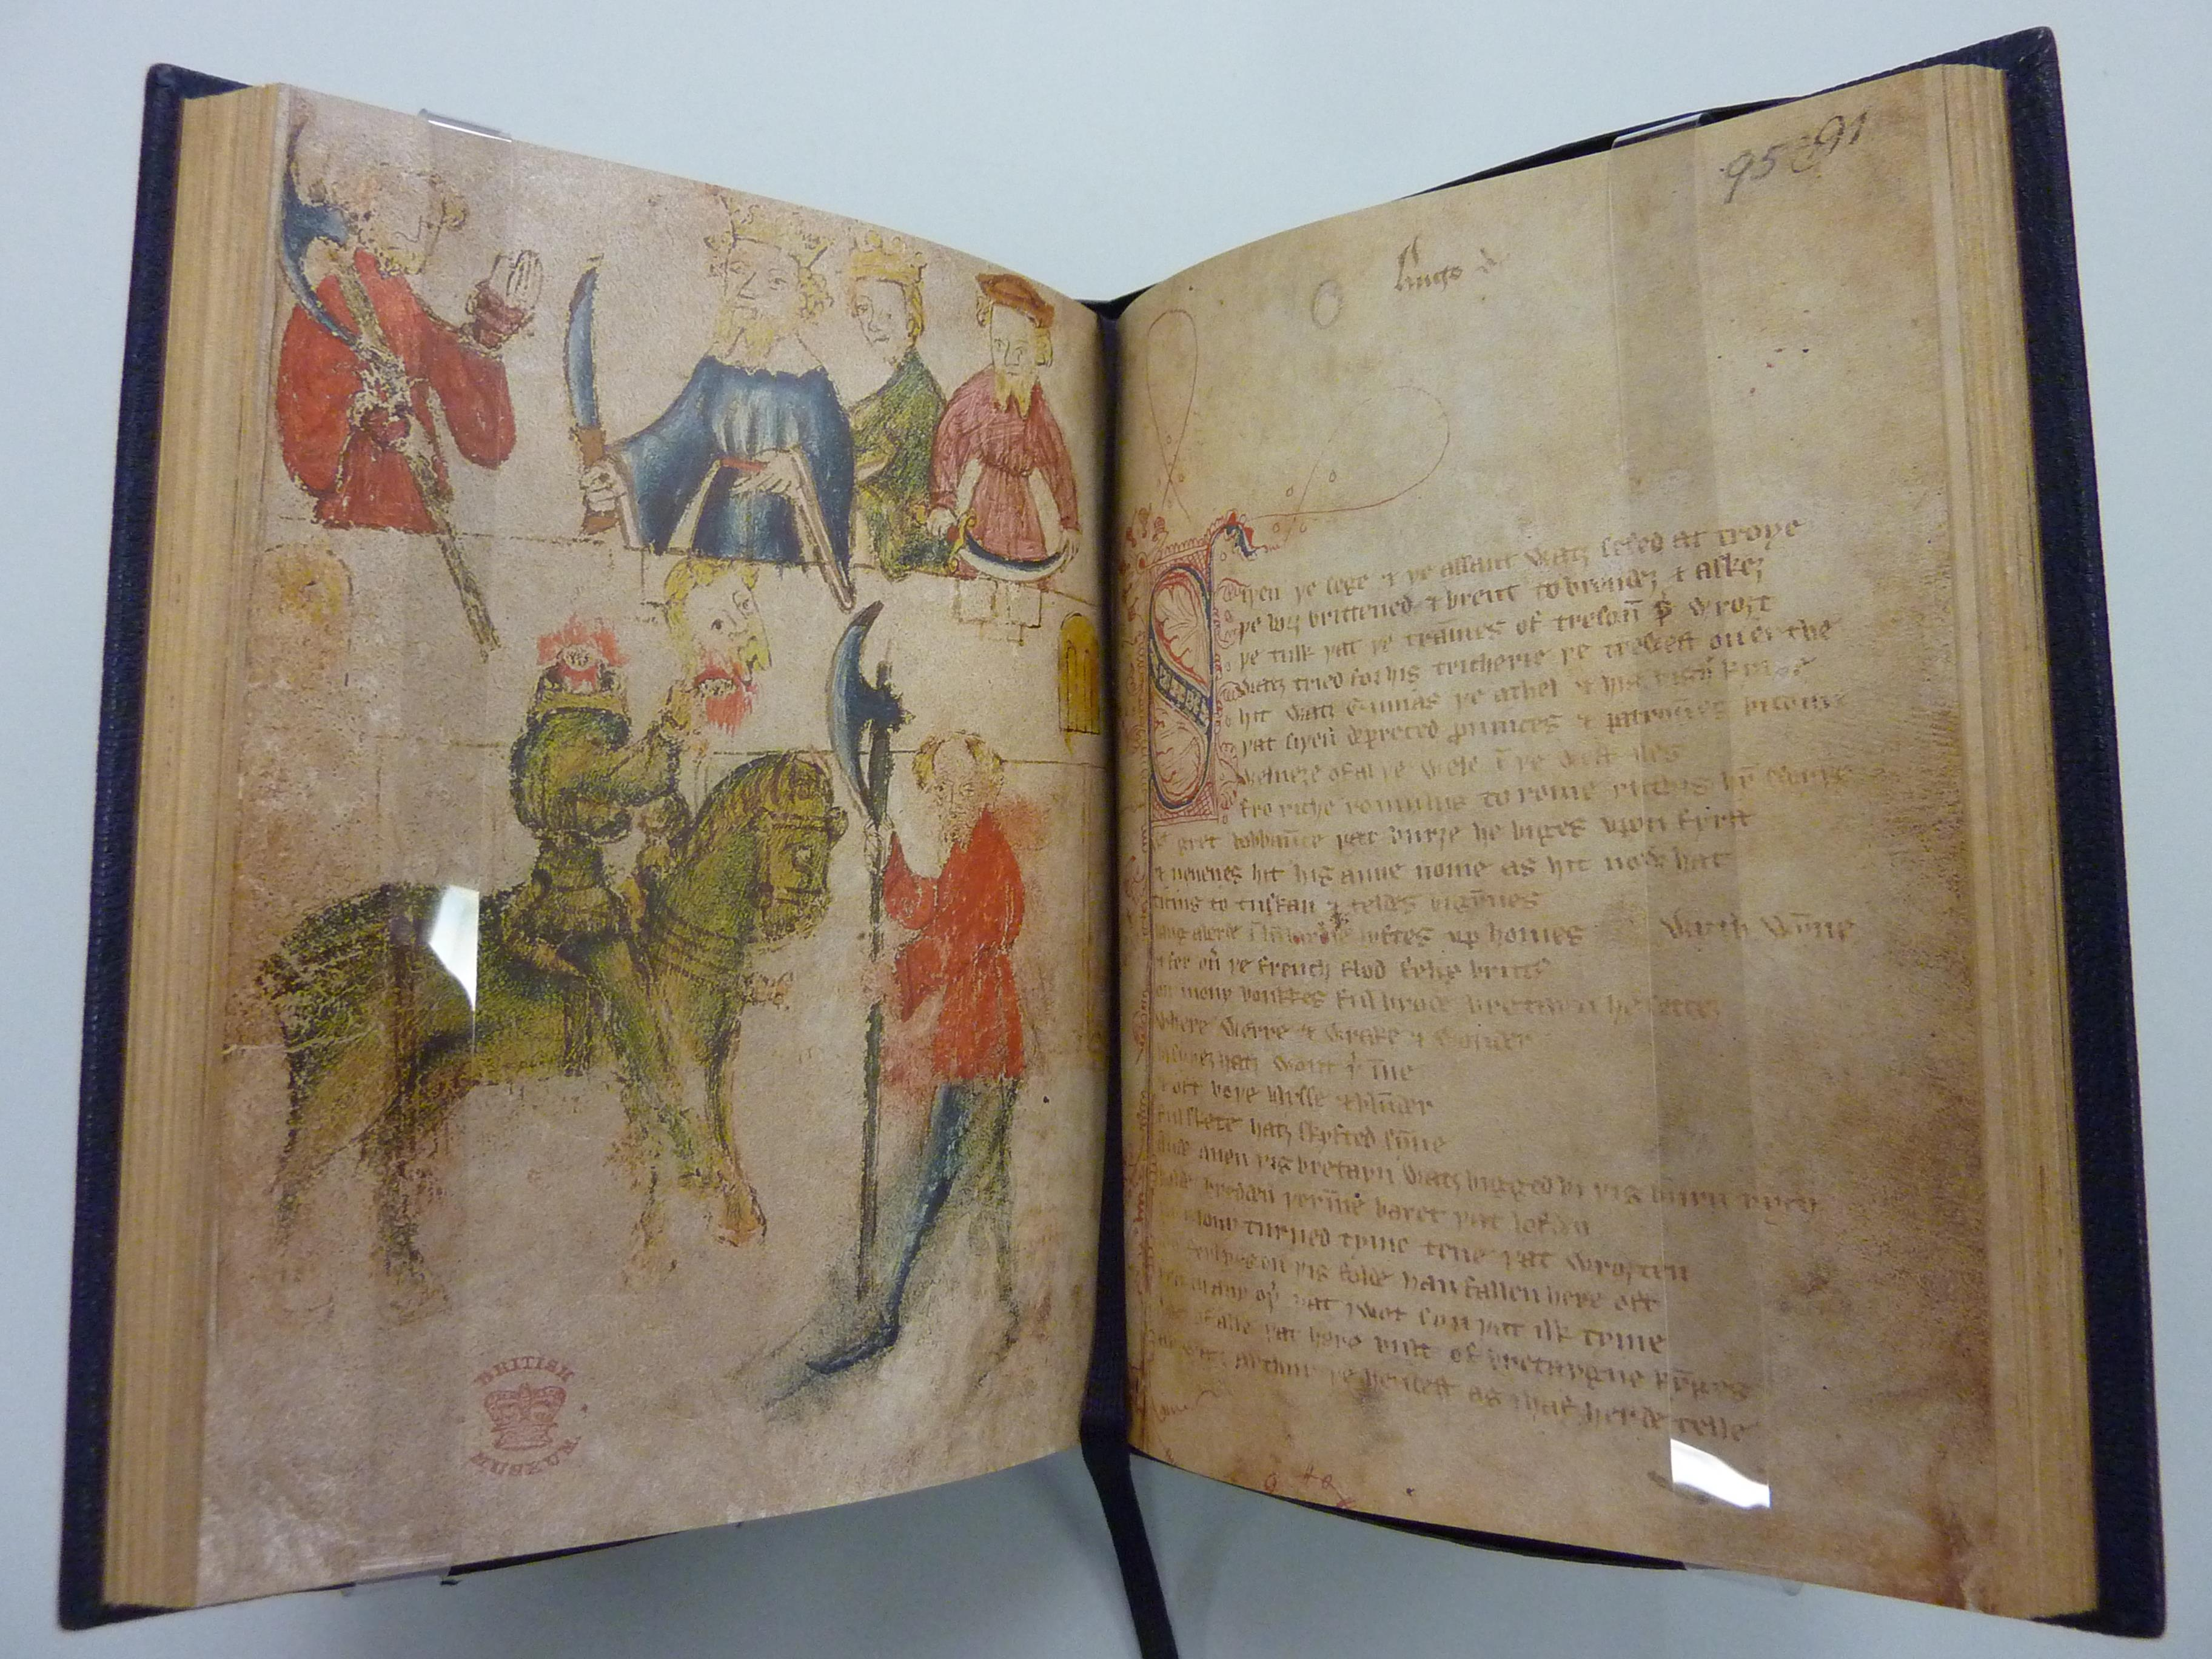 BRITISH
MUSEUM
95 91
hugo de
Siþen þe sege & þe assaut watz sesed at troye
þe brittened & brent to brondez & askez
þe tulk þat þe tram̄es of tresoū þ wroȝt
watz tried for his tricherie þe trewest on erthe
hit watz Ennias þe athel & his highe kynde
þat siþen depreced prouinces & patrounes bicome
welneȝe of al þe wele ī þe west iles
fro riche romulus to rome ricchis hȳ swyþe
gret bobbaūce þat burȝe he biges vpon fyrst
& neuenes hit his aune nome as hit now hat
ticius to tuskan & teldes bigȳnes
lyftes vp homes wyth wȳne
& fer oū þe french flod felix brutus
on mony bonkkes ful brode bretayn he settez
where werre & wrake & wonder
bi syþez hatz wont þ īne
& oft boþe blysse & blūder
ful skete hatz skyfted sȳne
Ande quen þis bretayn watz bigged bi þis burn rych
bolde bredden þ īne baret þat lofden
in mony turned tyme tene þat wroȝten
ferlyes on þis folde han fallen here oft
þen in any oþ þat I wot syn þat ilk tyme
bot of alle þat here bult of bretaygne kȳges
ay watz arthur þe hendest as I haf herde telle